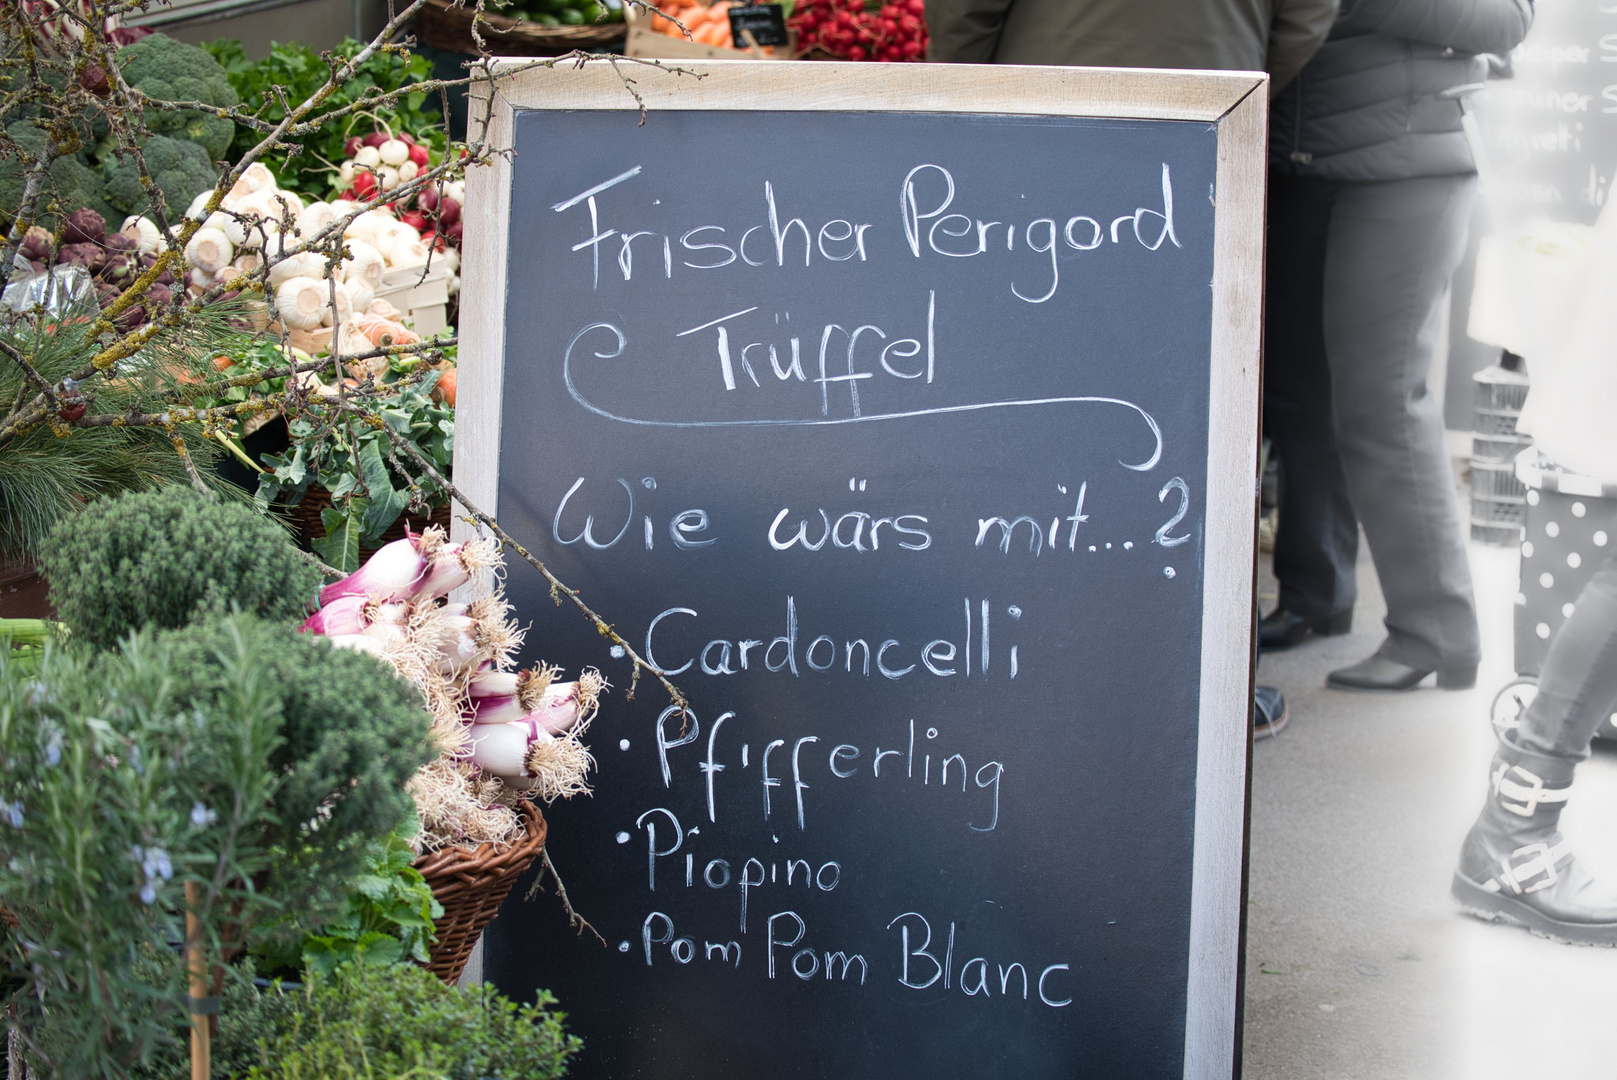 Frischer Perigord
Trüffel
Wie wärs mit...?
• Cardoncelli
• Pfifferling
• Piopino
• Pom Pom Blanc